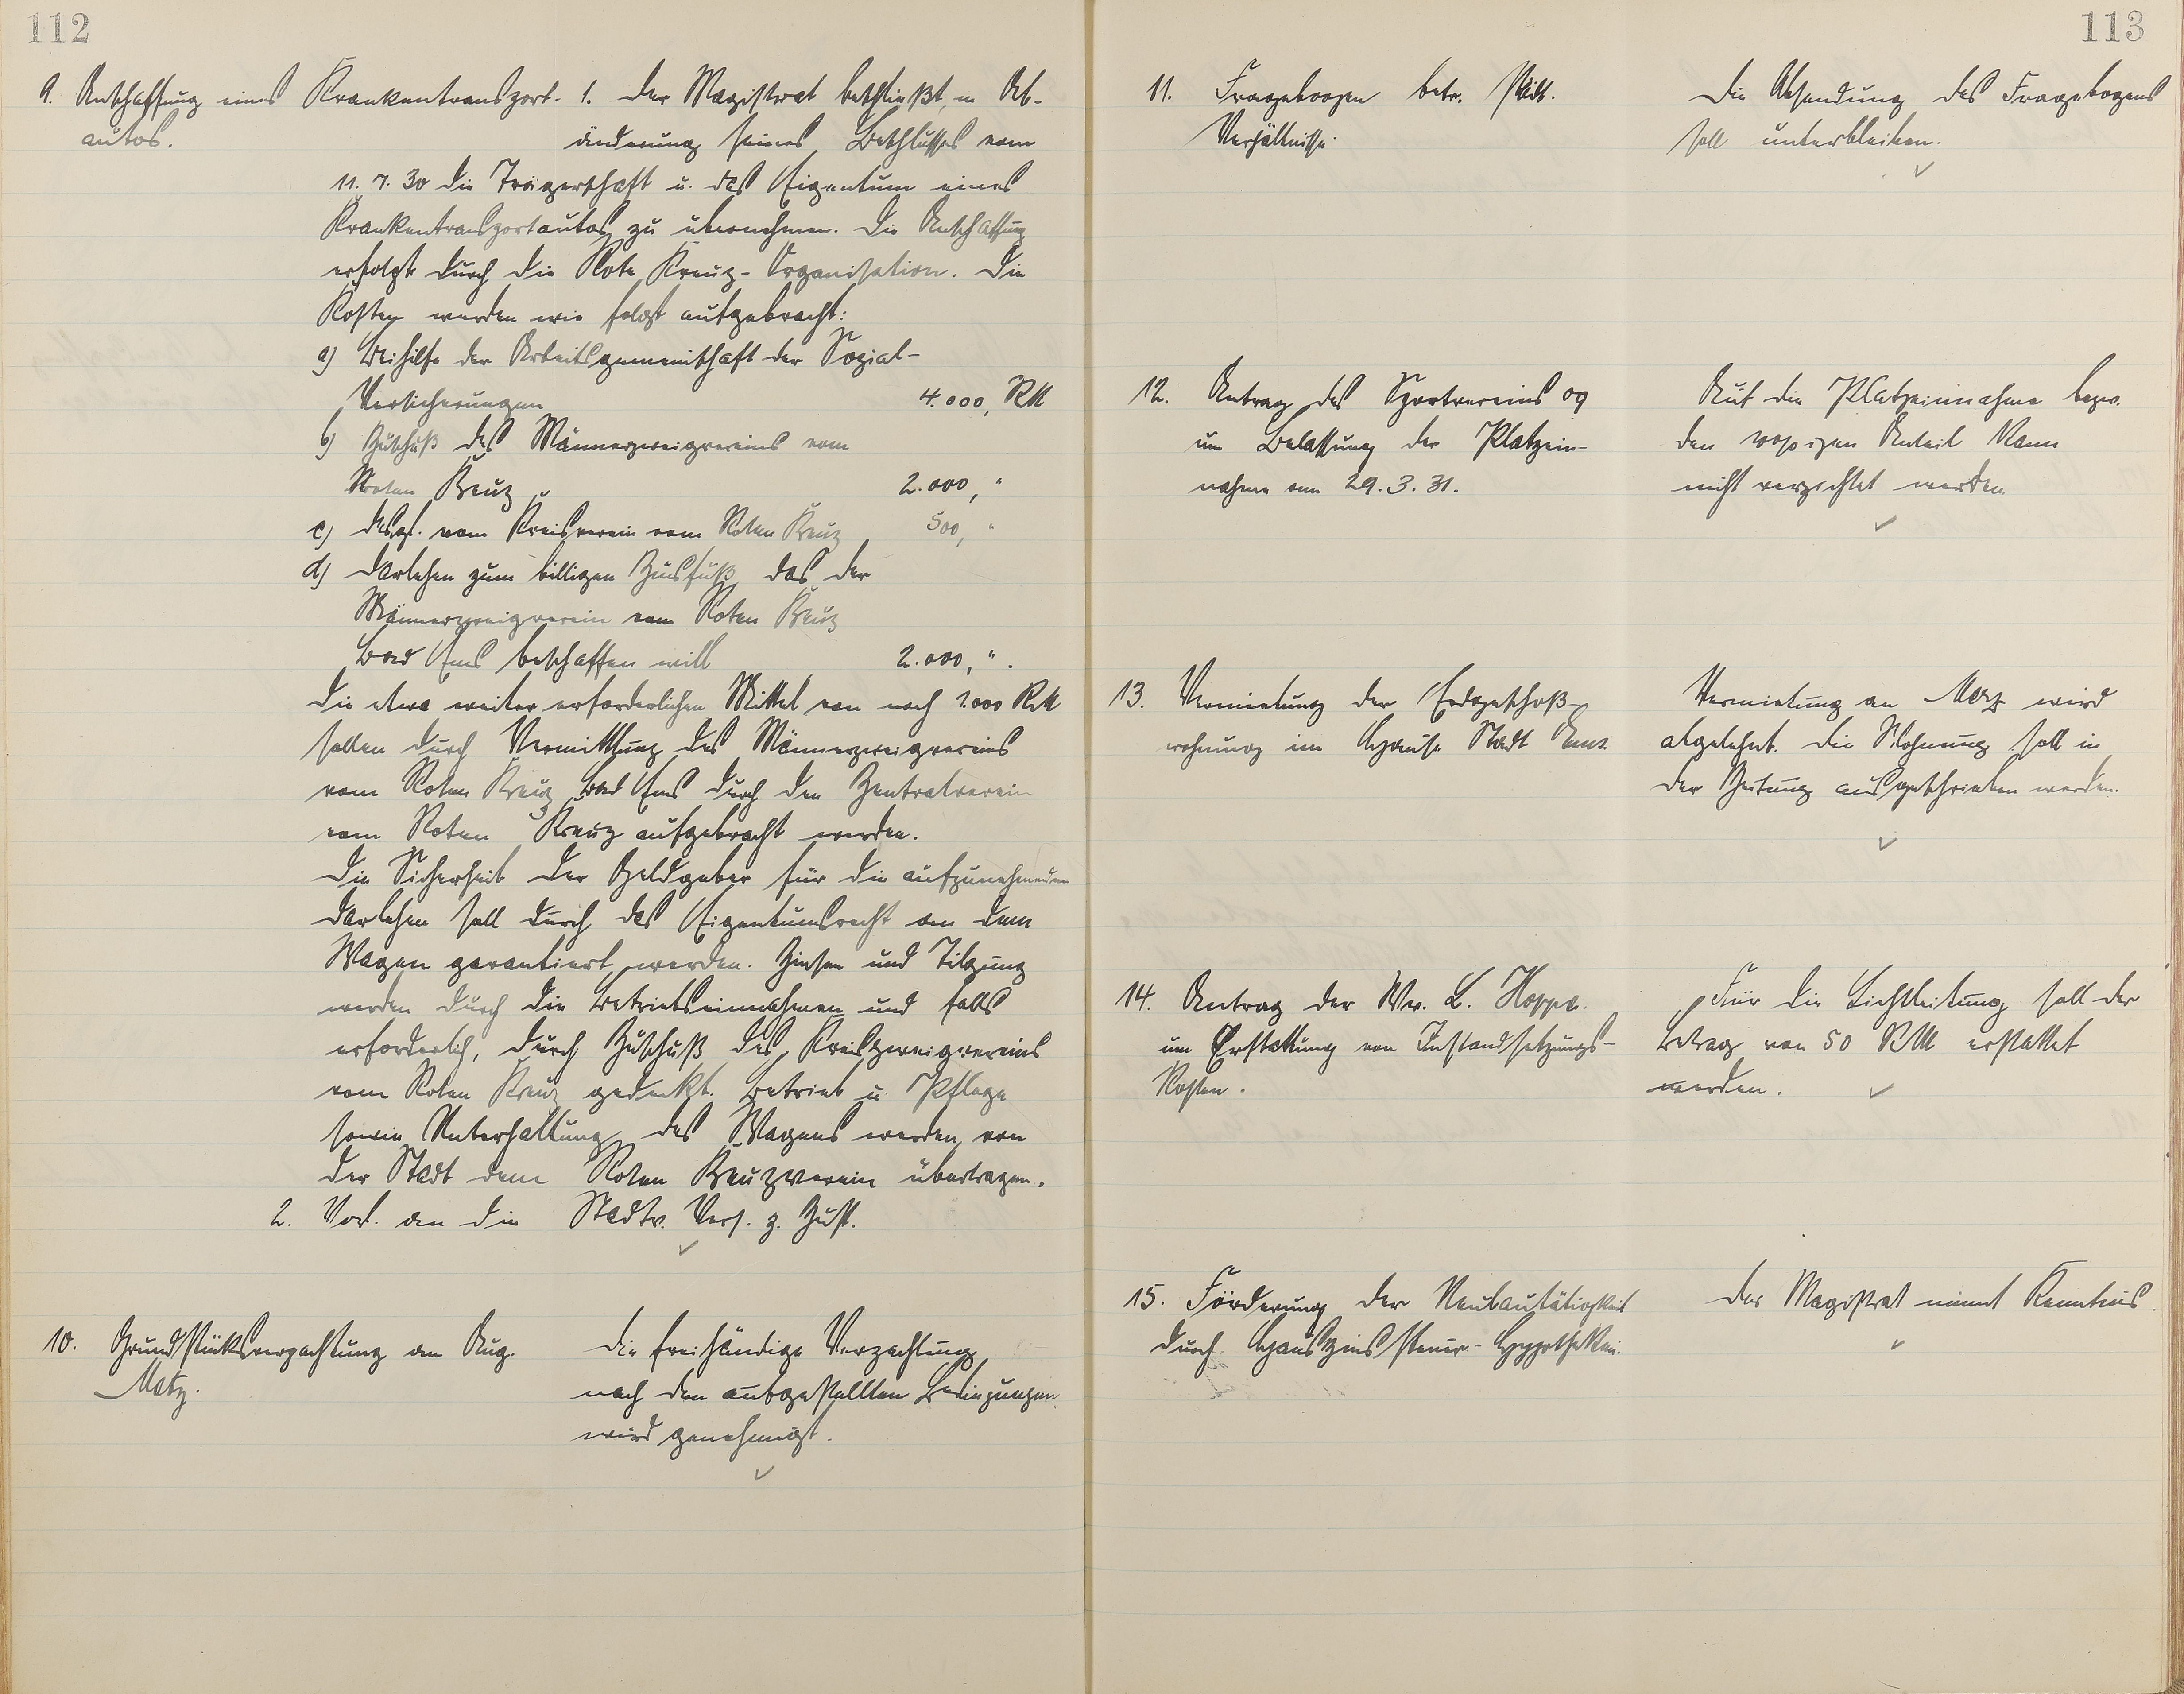 112
9. Anschaffung eines Krankentransport-
autos.
1. Der Magistrat beschließt, in Ab-
änderung seines Beschlusses vom
11. 7. 30 die Trägerschaft u. das Eigentum eines
Krankentransportautos zu übernehmen. Die Anschaffung
erfolgt durch die Rote Kreuz-Organisation. Die
Kosten werden wie folgt aufgebracht:
a) Beihilfe der Arbeitsgemeinschaft der Sozial-
Versicherungen 4.000, RM
b) Zuschuß des Männerzweigvereins vom
Roten Kreuz 2.000, "
c) desgl. vom Kreisverein vom Roten Kreuz 500, "
d) Darlehen zum billigen Zinsfuß, das der
Männerzweigverein vom Roten Kreuz
Bad Ems beschaffen will 2.000, ".
Die etwa weiter erforderlichen Mittel von noch 1.000 RM
sollen durch Vermittlung des Männerzweigvereins
vom Roten Kreuz Bad Ems durch den Zentralverein
vom Roten Kreuz aufgebracht werden.
Die Sicherheit der Geldgeber für die aufzunehmenden
Darlehen soll durch das Eigentumsrecht an dem
Wagen garantiert werden. Zinsen und Tilgung
werden durch die Betriebseinnahmen und falls
erforderlich, durch Zuschuß des Kreiszweigvereins
vom Roten Kreuz gedeckt. Betrieb u. Pflege
sowie Unterhaltung des Wagens werden von
der Stadt dem Roten Kreuzverein übertragen.
2. Vorl. an die Stadtv. Vers. z. Zust.
10. Grundstücksverpachtung an Aug.
Matz.
Die freihändige Verpachtung
nach den aufgestellten Bedingungen
wird genehmigt.
113
11. Fragebogen betr. städt.
Verhältnisse.
Die Absendung des Fragebogens
soll unterbleiben.
12. Antrag des Sportvereins 09
um Belassung der Platzein-
nahme vom 29. 3. 31.
Auf die Platzeinnahme bezw.
den %igen Anteil kann
nicht verzichtet werden.
13. Vermietung der Erdgeschoß-
wohnung im Hause Stadt Ems.
Vermietung an wird
abgelehnt. Die Wohnung soll in
der Zeitung ausgeschrieben werden.
14. Antrag der Ww. L. Hoppe.
um Erstattung von Instandsetzungs-
kosten.
Für die Lichtleitung soll der
Betrag von 50 RM erstattet
werden.
15. Förderung der Neubautätigkeit
durch Hauszinssteuer-Hypotheken.
Der Magistrat nimmt Kenntnis.